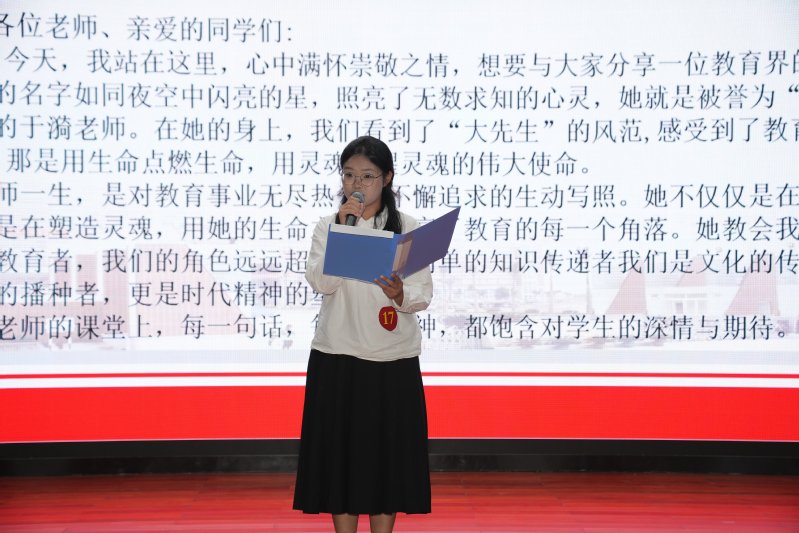 各位老师、亲爱的同学们:
今天，我站在这里，心中满怀崇敬之情，想要与大家分享一位教育界的
的名字如同夜空中闪亮的星，照亮了无数求知的心灵，她就是被誉为“
的于漪老师。在她的身上，我们看到了“大先生”的风范,感受到了教育
那是用生命点燃生命，用灵魂 灵魂的伟大使命。
师一生，是对教育事业无尽热 不懈追求的生动写照。她不仅仅是在
是在塑造灵魂，用她的生命 教育的每一个角落。她教会我
教育者，我们的角色远远超 单的知识传递者我们是文化的传
的播种者，更是时代精神的
老师的课堂上，每一句话， 神，都饱含对学生的深情与期待。
17